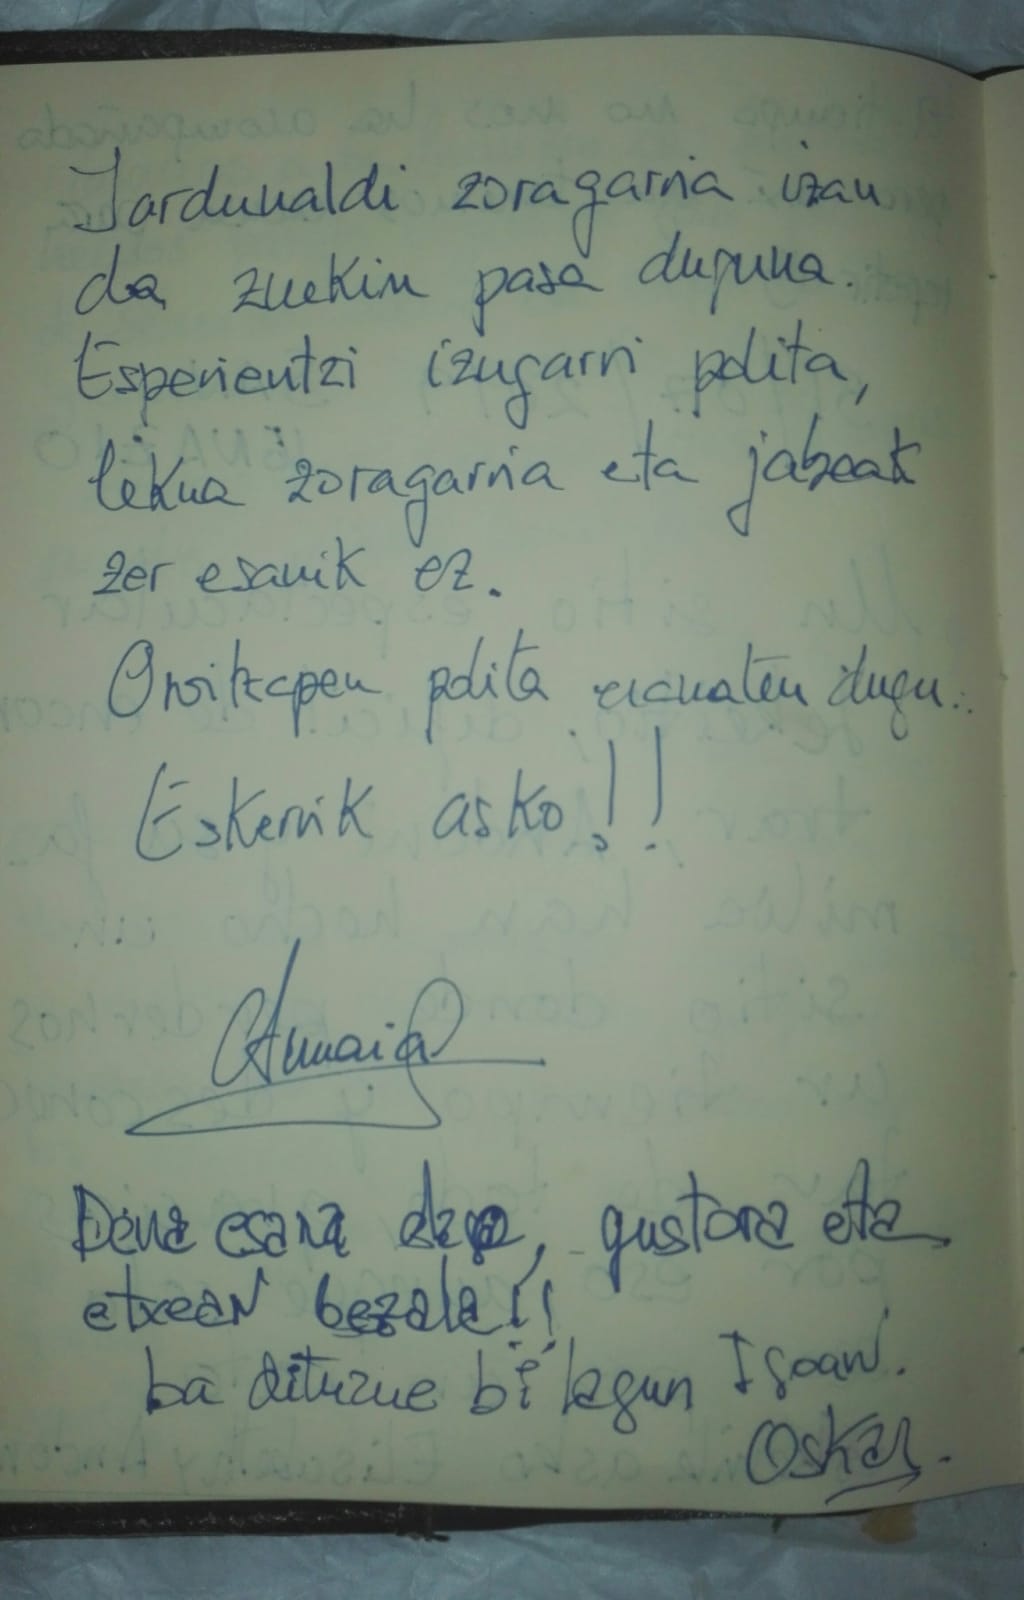 Jardunaldi zoragarria izan
da zuekin pasa duguna.
Esperientzi izugarri polita,
lekua zoragarria eta jabeak
zer esanik ez.
Oroitzapen polita eramaten dugu..
Eskerrik asko!!
Amaia
Dena esana dago, gustora eta
etxean bezala!!
ba dituzue bi lagun Itsoan.
Oskar.